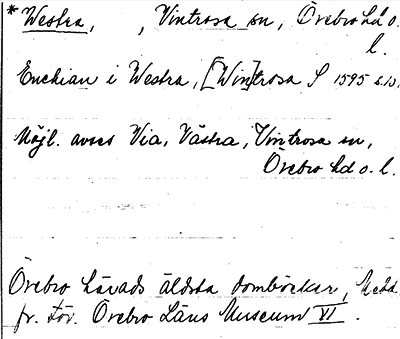 * Westra, , Vintrosa sn, Örebro hd o.
l.
Enckian i Westra, [Win]trosa S 1595
Möjl. avses Via, Västra, Vintrosa sn,
Örebro hd o. l.
Örebro härads äldsta domböcker, Medd.
fr. För. Örebro Läns Museum VI.